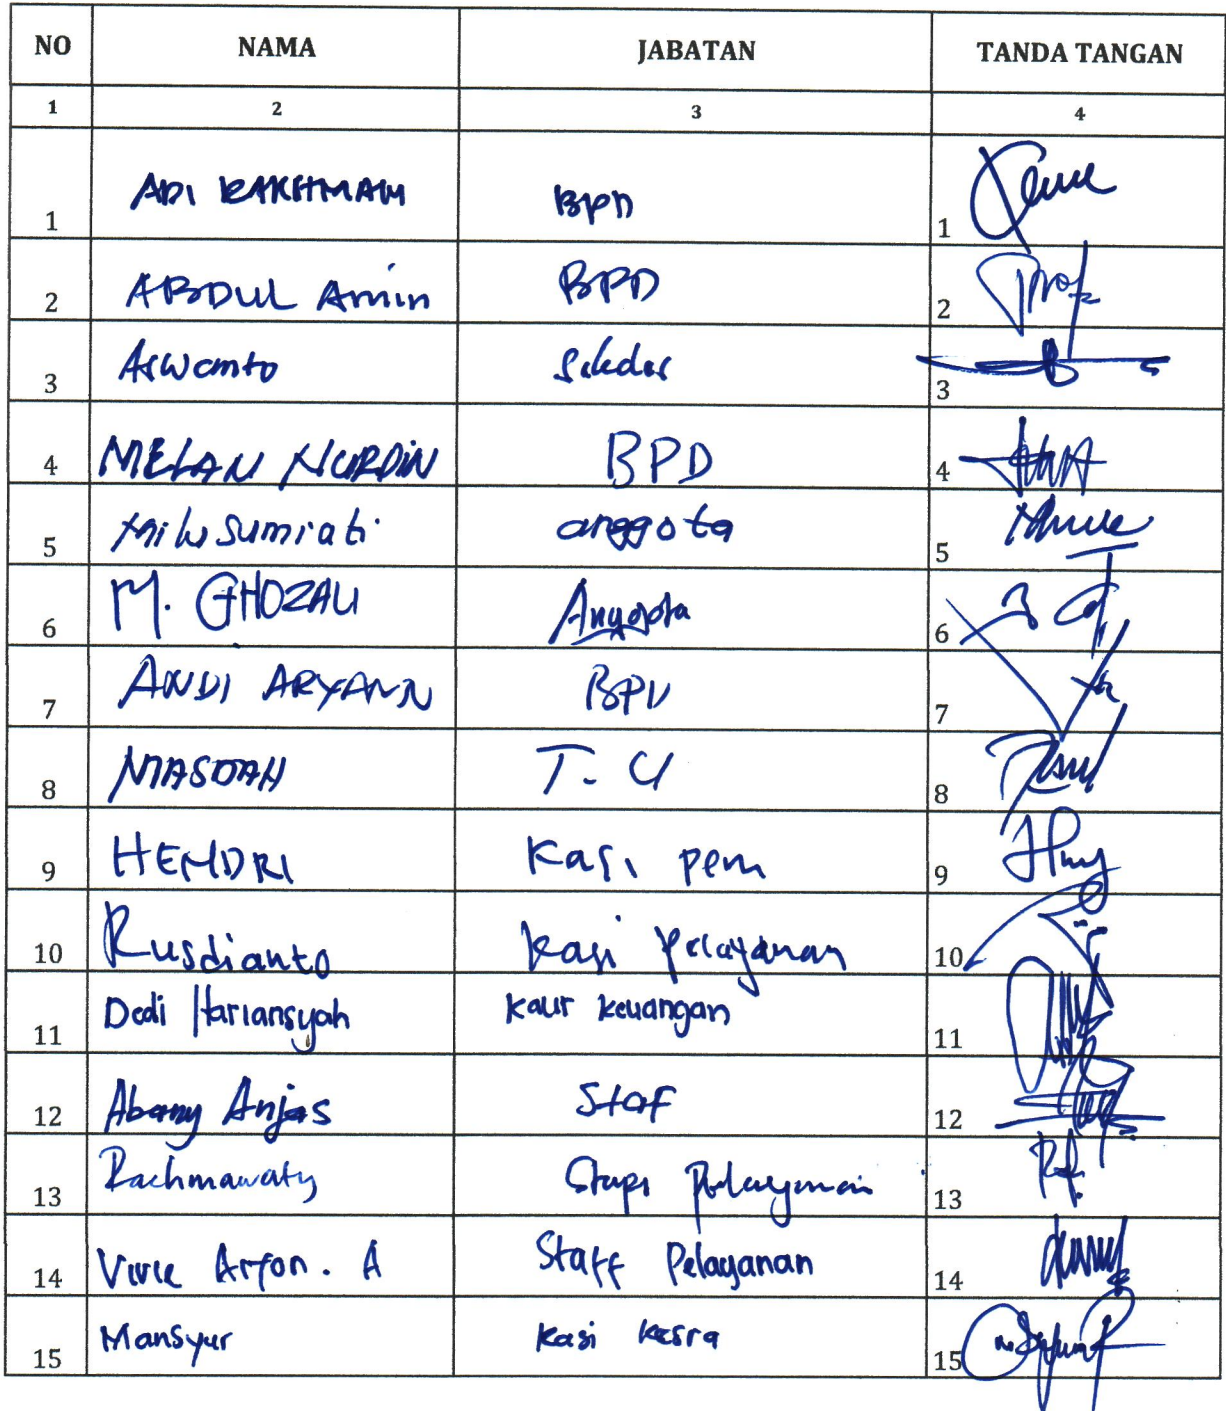 NO NAMA JABATAN TANDA TANGAN
1 2 3 4
1 ADI RAKHMAN BPD 1
2 ABDUL Amin BPD 2
3 Aswanto Sekdes 3
4 MELAN NURDIN BPD 4
5 Sumiati anggota 5
6 M. GHOZALI Anggota 6
7 ANDI ARYANN BPD 7
8 MASDAH T. U 8
9 HENDRI Kasi pem 9
10 Rusdianto kasi pelayanan 10
11 Dedi Hariansyah kaur keuangan 11
12 Abang Anjas Staf 12
13 Rachmawaty Pelayanan 13
14 Arfon. A Staff Pelayanan 14
15 Mansyur kasi kesra 15